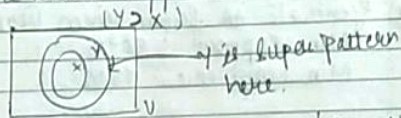 (Y ⊃ X)
Y
x
y is Super pattern
here.
U